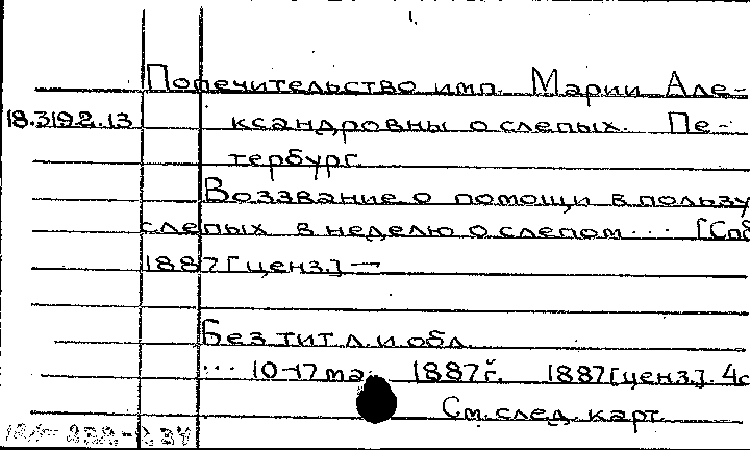 1.
Попечительство имп. Марии Але-
18.3192.13 ксандровны о слепых. Пе-
тербург.
Воззвание о помощи в пользу
слепых в неделю о слепом ... [Спб
1887 [ценз.] —
Без тит л. и обл.
... 10-17 1887 г. 1887 [ценз.]. 4с
См. след. карт.